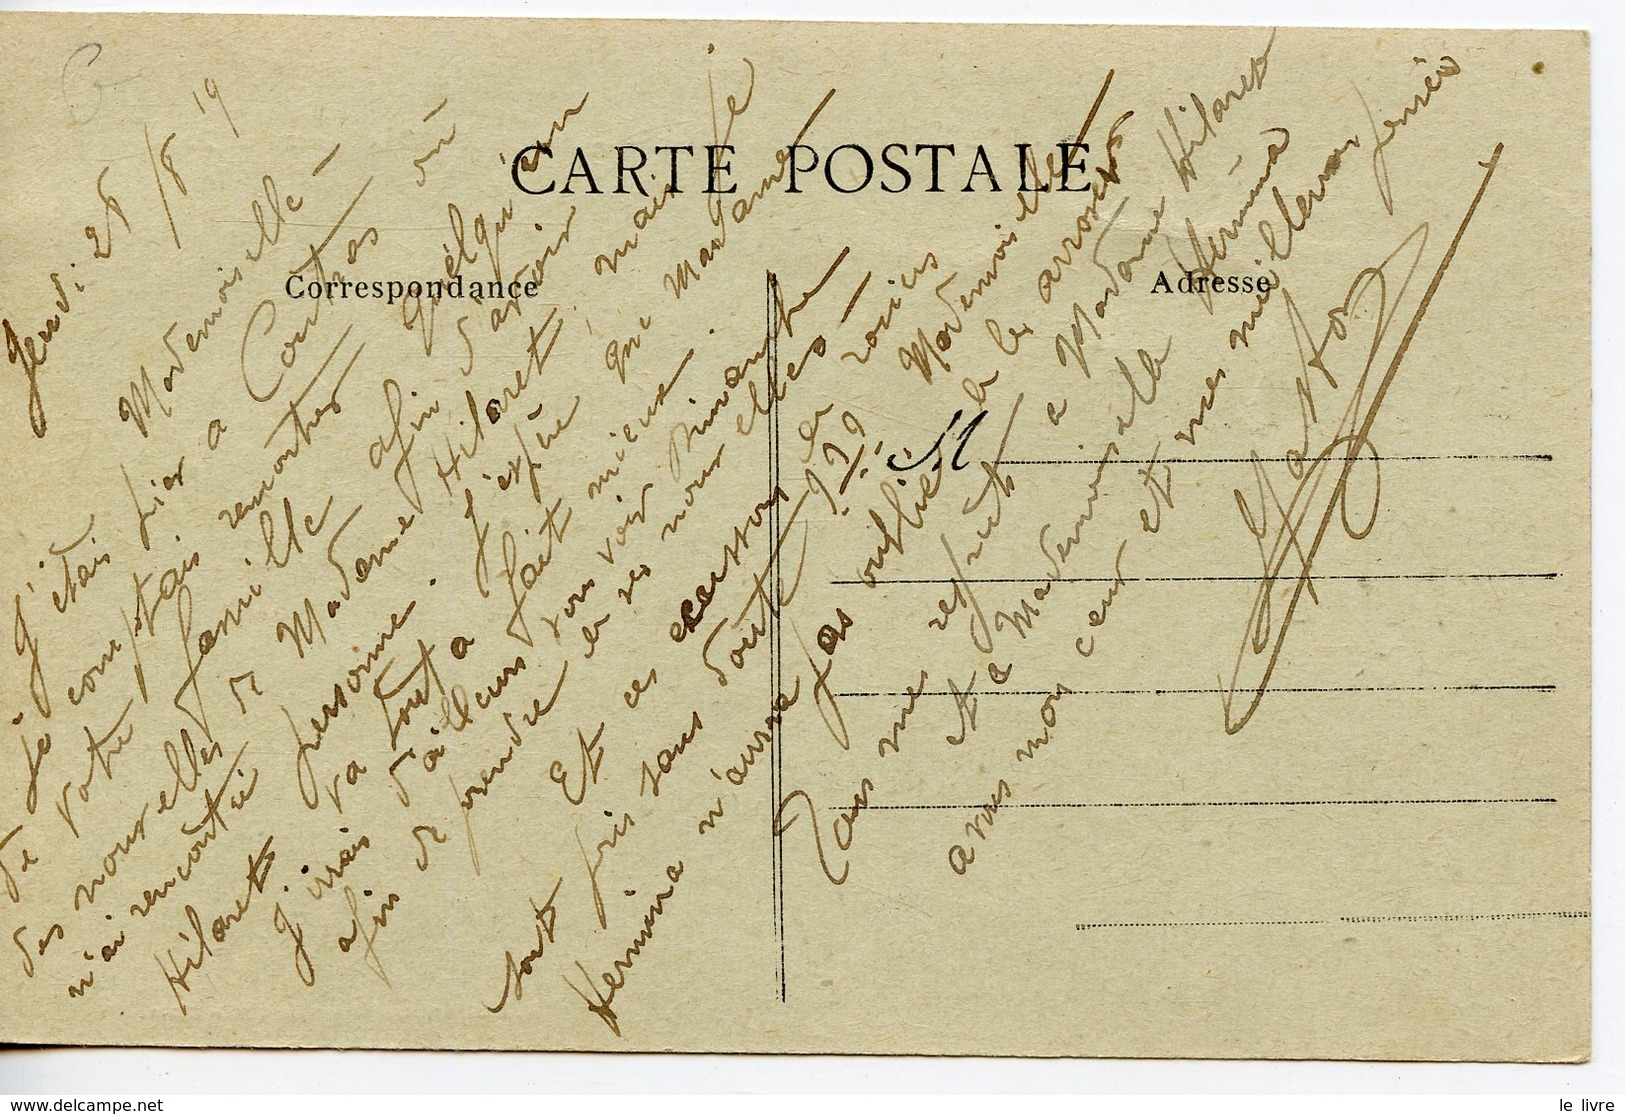 CARTE POSTALE
Correspondance
Adresse
Jeudi 28/8 19
Mademoiselle -
J'étais hier a Coutras où
je comptais rencontrer quelqu'un
de votre famille afin d'avoir
des nouvelles de Madame Hilaret mais je
n'ai rencontré personne. J'espère que Madame
Hilaret va tout a fait mieux.
J'irais d'ailleurs vous voir Dimanche
afin de prendre de ses nouvelles -
Et ces
sont pris sans doute en ???
Hermina n'aura pas oublié de les arroser
Mademoiselle
M
Tous mes respects a Madame Hilaret
et a Mademoiselle Hermina
a vous mon cœur et mes meilleures pensées
Gaston
delcampe.net
le livre